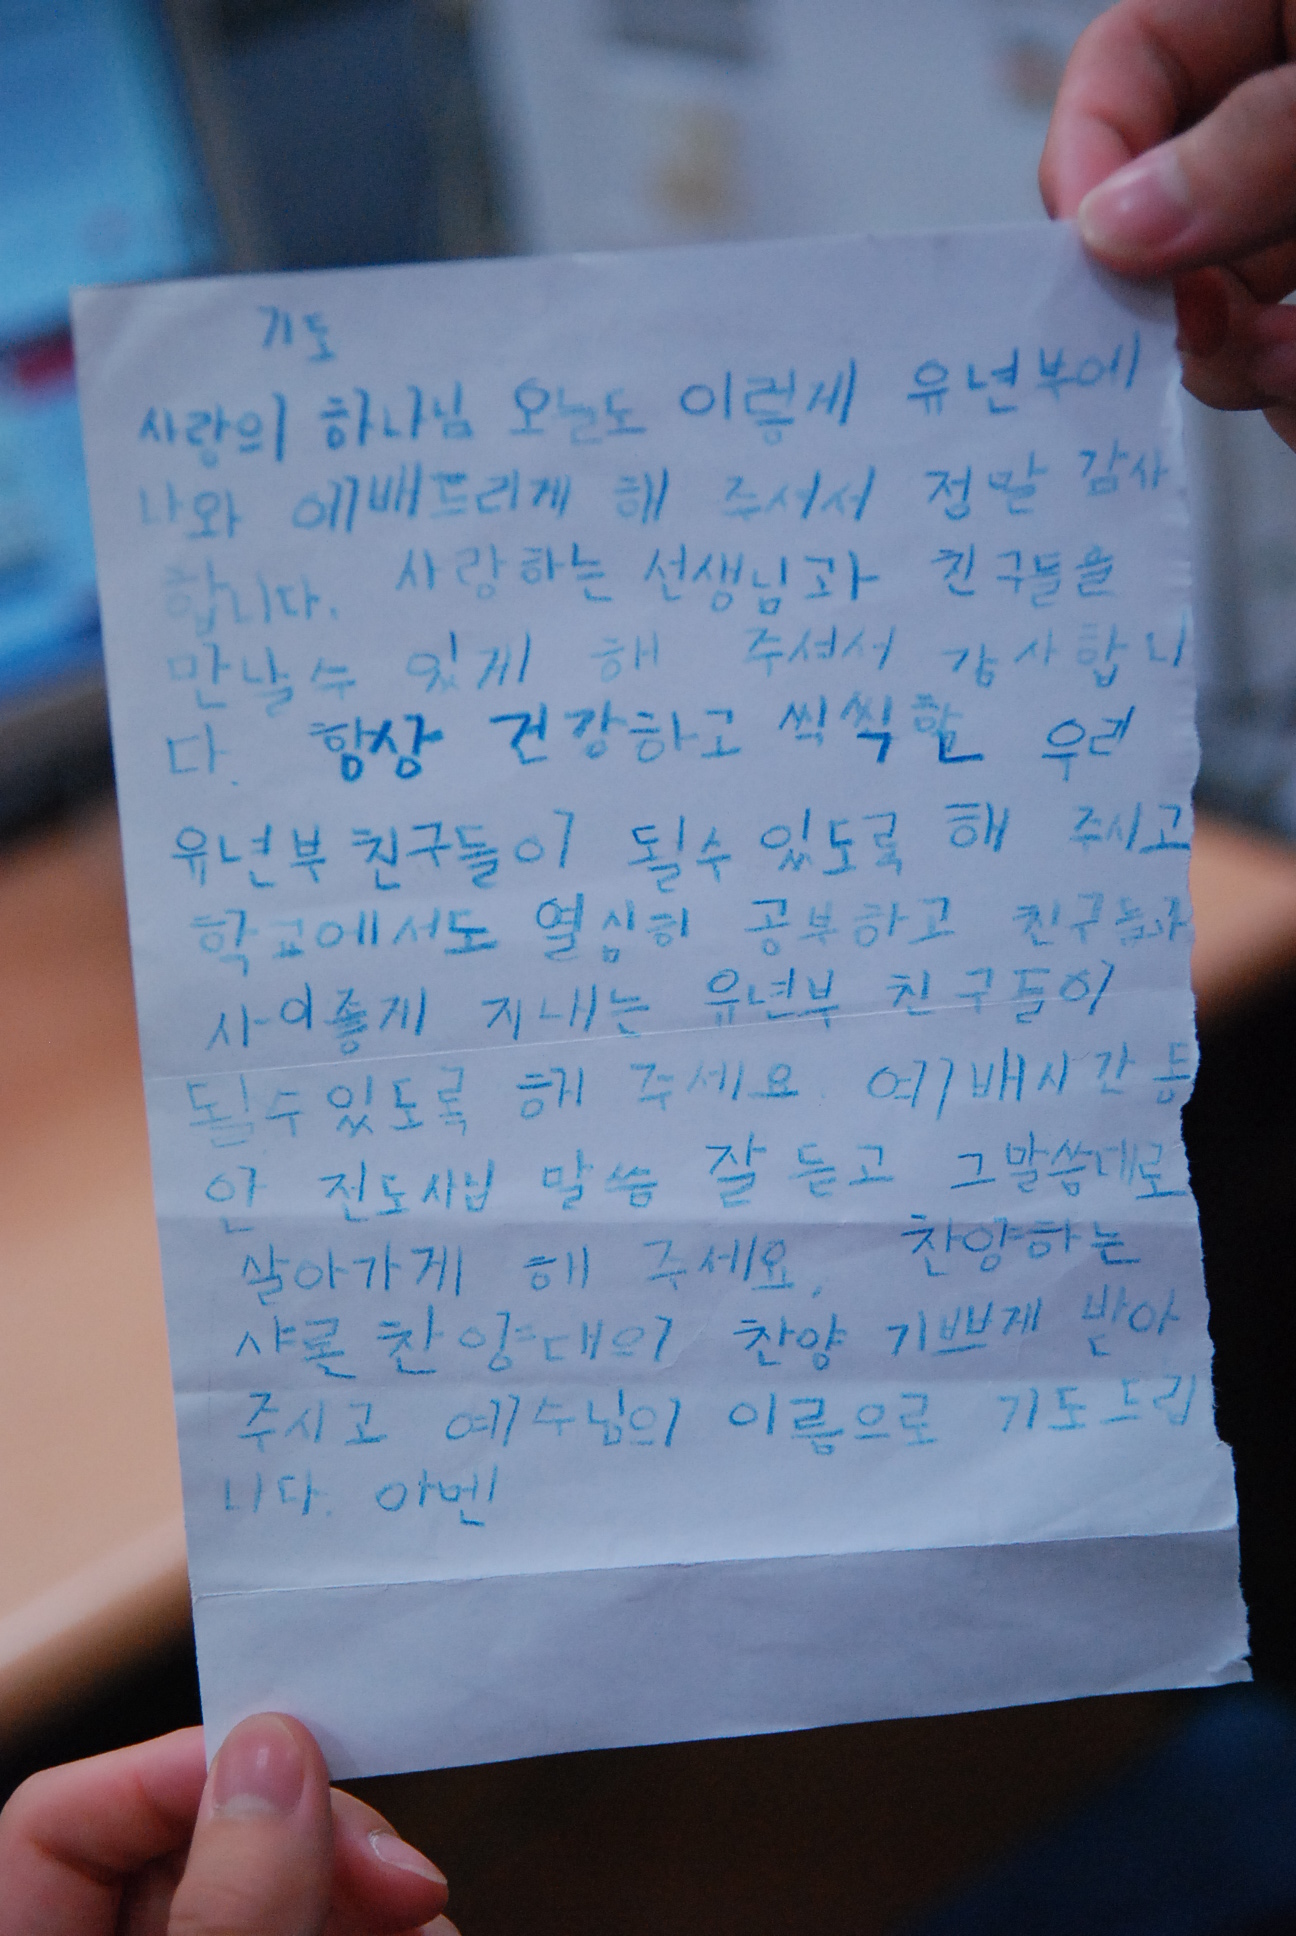 기도
사랑의 하나님 오늘도 이렇게 유년부에
나와 예배드리게 해 주셔서 정말 감사
합니다. 사랑하는 선생님과 친구들을
만날수 있게 해 주셔서 감사합니
다. 항상 건강하고 씩씩한 우리
유년부 친구들이 될수 있도록 해 주시고
학교에서도 열심히 공부하고 친구들과
사이좋게 지내는 유년부 친구들이
될수 있도록 해 주세요. 예배시간 동
안 전도사님 말씀 잘 듣고 그말씀대로
살아가게 해 주세요. 찬양하는
샤론 찬양대의 찬양 기쁘게 받아
주시고 예수님의 이름으로 기도드립
니다. 아멘